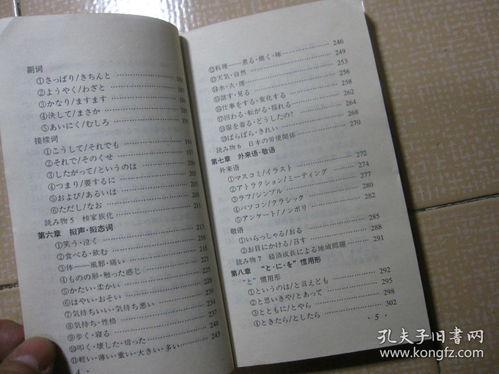 副词
①さっぱり/きちんと
②ようやく/わざと
③かなり/ますます
④決して/まさか
⑤あいにく/むしろ
接续词
①こうして/それでも
②それで/そのくせ
③したがって/というのは
④つまり/要するに
⑤および/あるいは
⑥ただし/なお
読み物5 核家族化
第六章 拟声·拟态词
①笑う·泣く
②食べる·飲む
③体——風邪·痛い
④ものの形·触った感じ
⑤かたい·まかい
⑥はやい·おそい
⑦気持ちいい·気持ち悪い 237
⑧気持ち·性格 239
⑨歩く·寝る 241
⑩叩く·壊した·切った 243
⑪軽い·薄い·重い·大きい·多い 245
· 4 ·
⑫料理——煮る·焼く·味 246
⑬天気·自然 249
⑭水·火·雨 253
⑮話す·見る 256
⑯仕事をする·変化する 258
⑰回わる·転がる·揺れる 262
⑱服を着る·どうしたの? 264
⑲ばらばら·きれい 268
読み物6 日本の労使関係 270
第七章 外来语·敬语
外来语
①マスコミ/イラスト 272
②アトラクション/ミーティング 274
③ラフ/シンプル 277
④パソコン/クラシック 279
⑤アンケート/ノンポリ 282
敬语
①いらっしゃる/おる 285
②お目にかかる/召す 288
読み物7 経済成長による地域問題 291
第八章 “と·に·を”惯用形
“と”惯用形
①というのは/と言えども 292
②と思いきや/とあって 295
③とともに/とやら 298
④ときたら/としたら 302
· 5 ·
孔夫子旧书网
www.kongfz.com